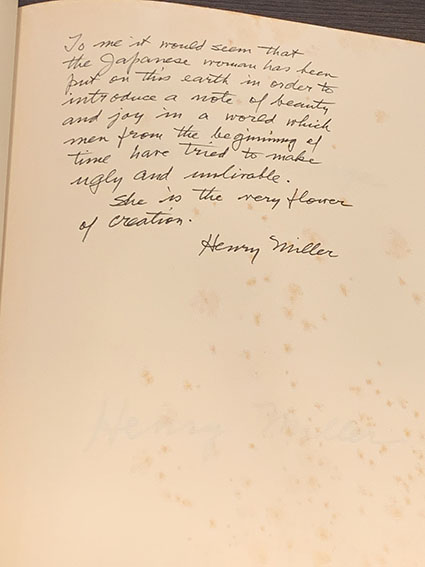 To me it would seem that
the Japanese woman has been
put on this earth in order to
introduce a note of beauty
and joy in a world which
men from the beginning of
time have tried to make
ugly and unlivable.
She is the very flower
of creation.
Henry Miller
Henry Miller